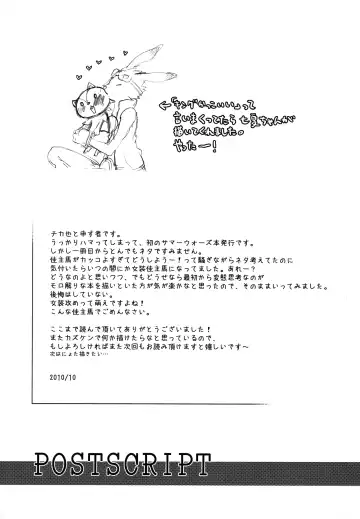 ←「キングかっこいい」って
言いまくってたら七夏ちゃんが
描いてくれました。
やったー！
チカ也と申す者です。
うっかりハマってしまって、初のサマーウォーズ本発行です。
しかし一冊目からとんでもネタですみません。
佳主馬がカッコよすぎてどうしよう～！って騒ぎながらネタ考えてたのに
気付いたらいつの間にか女装佳主馬になってました。あれー？
どうなのよと思いつつ、でもどうせなら最初から変態思考なのが
モロ解りな本を描いといた方が気が楽かなと思ったので、そのままいってみました。
後悔はしていない。
女装攻めって萌えですよね！
こんな佳主馬でごめんなさい。
ここまで読んで頂いてありがとうございました！
またカズケンで何か描けたらなと思っているので、
もしよろしければまた次回もお読み頂けますと嬉しいです～
次はにょた描きたい…
2010/10
POSTSCRIPT